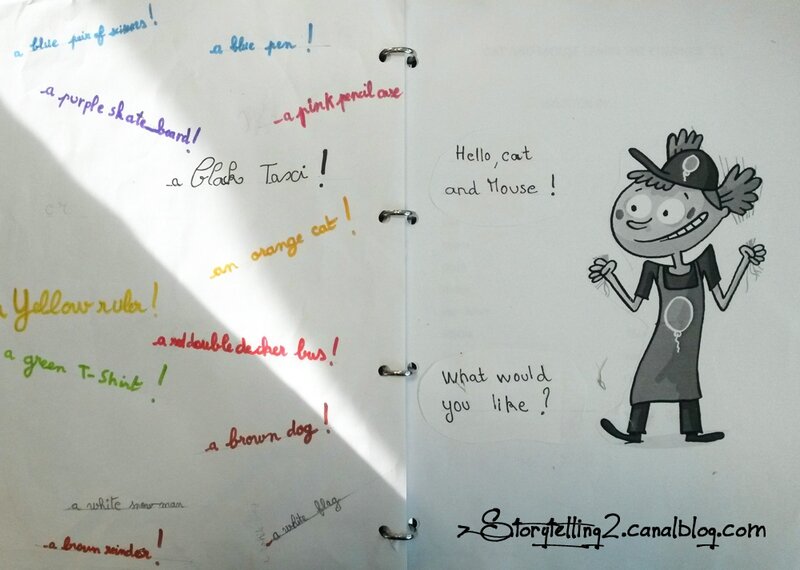 a blue pair of scissors!
a blue pen!
a purple skate-board!
a pink pencil case
a black Taxi!
an orange cat!
a Yellow ruler!
a red double decker bus!
a green T-Shirt!
a brown dog!
a white snow-man
a white flag
a brown reindeer!
Hello, cat
and Mouse!
What would
you like?
Storytelling2.canalblog.com